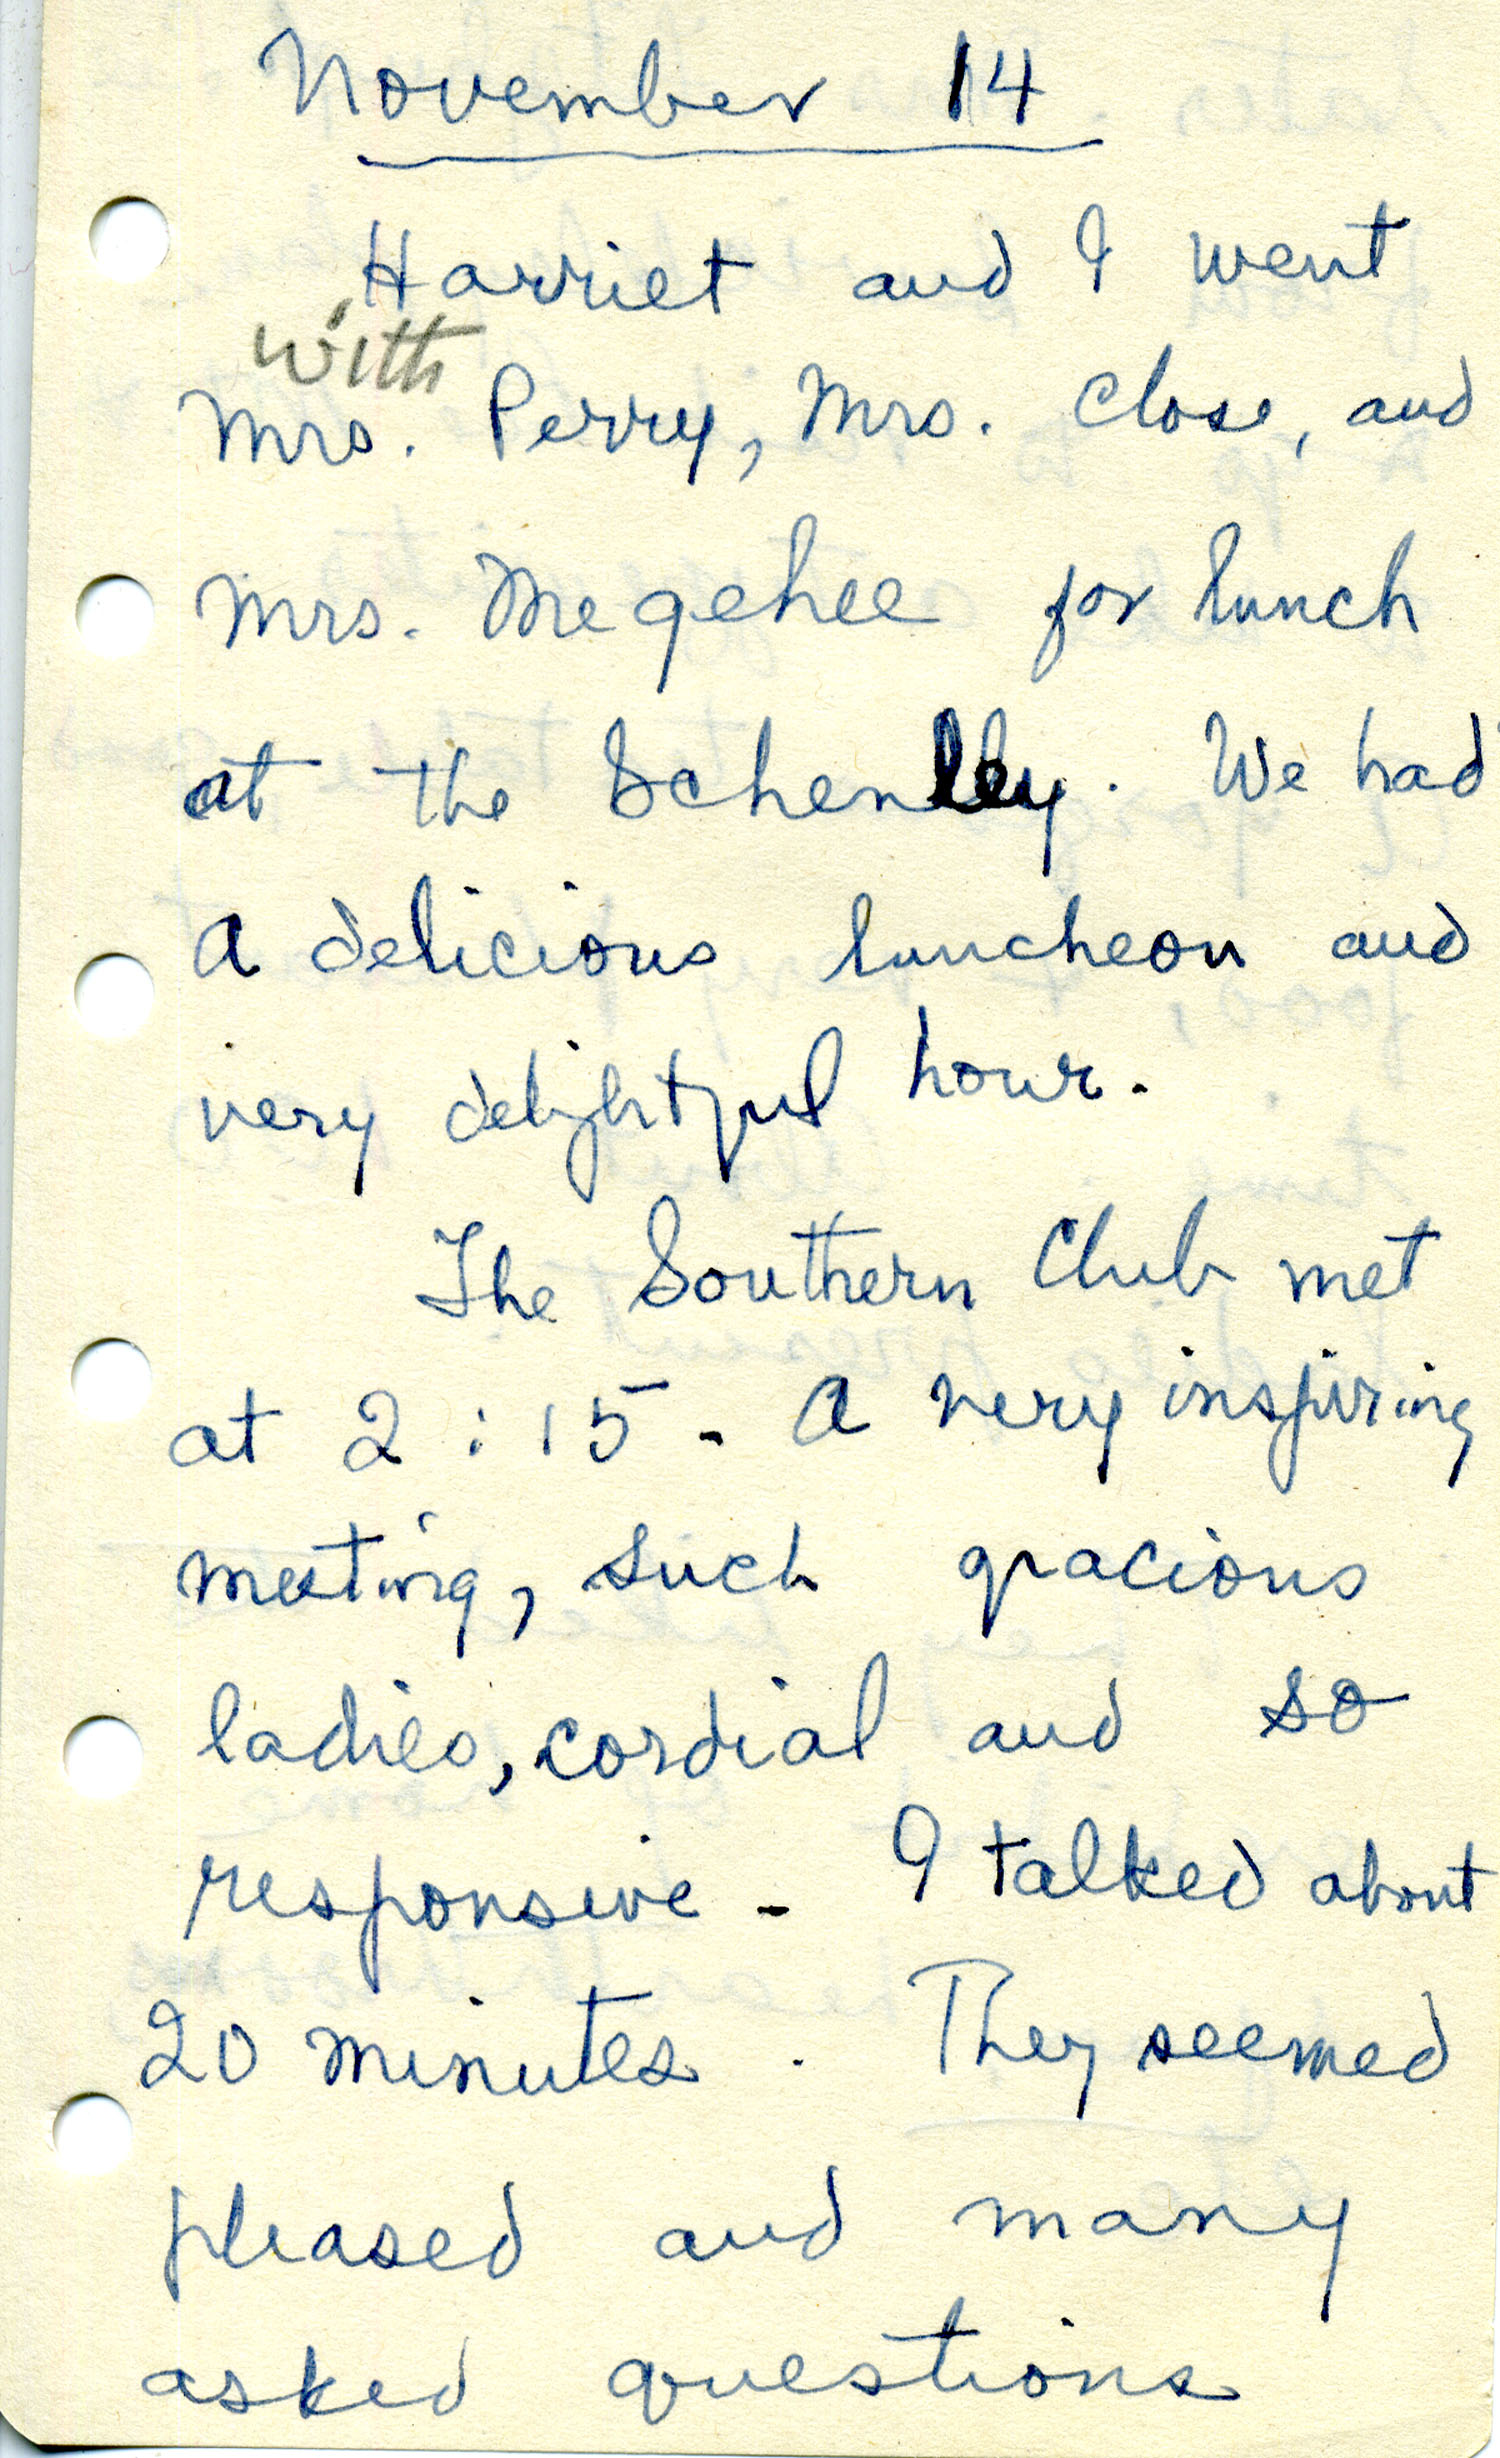 November 14
Harriet and I went
with
Mrs. Perry, Mrs. Close, and
Mrs. Megehee for lunch
at the Schenley. We had
a delicious luncheon and
very delightful hour.
The Southern Club met
at 2:15. A very inspiring
meeting, such gracious
ladies, cordial and so
responsive. I talked about
20 minutes. They seemed
pleased and many
asked questions